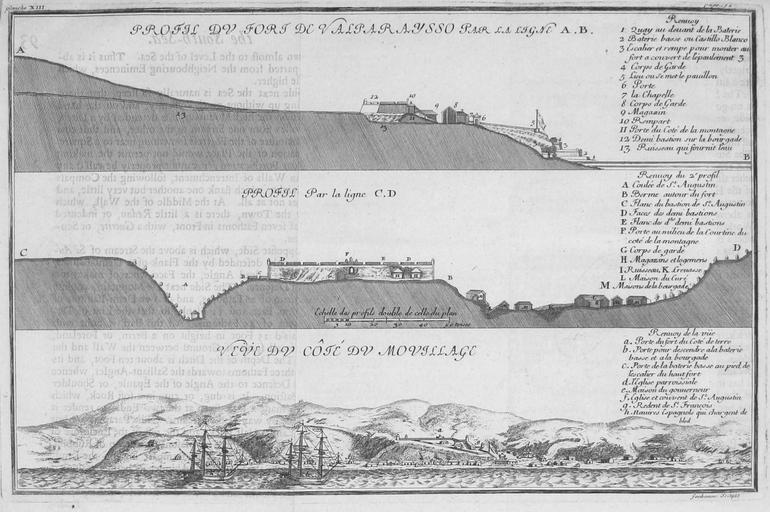 Planche XIII
page.
PROFIL DV FORT DE VALPARAYSSO PAR LA LIGNE A.B.
Renvoy
1 Quay au devant de la Baterie
2 Baterie basse ou Castillo Blanco
3 Escalier et rempe pour monter au
fort a couvert de lépaulement 3
4 Corps de Garde
5 Lieu ou se met le pavillon
6 Porte
7 la Chapelle
8 Corps de Garde
9 Magasin
10 Rempart
11 Porte du Coté de la montagne
12 Demi bastion sur la bourgade
13 Ruisseau qui fournit leau
A
B
12
10
9
8
6
5
13
13
PROFIL Par la ligne C.D
Renvoy du 2e profil
A Coulée de St. Augustin
B Berme autour du fort
C Flanc du bastion de St. Augustin
D Faces des demi bastions
E Flanc des dits demi bastions
F Porte au milieu de la Courtine du
coté de la montagne
G Corps de garde
H Magazins et logemens
I Ruisseau, K Crevasse
L Maison du Curé
M Maisons de la bourgade
C
D
F
E
D
B
C
B
D
Echelle des profils double de celle du plan
10
20
30
40
VEÜE DV CÔTÉ DV MOVILLAGE
Renvoy de la vüe
a. Porte du fort du Coté de terre
b. Porte pour descendre a la baterie
basse et a la bourgade
c. Porte de la baterie basse au pied de
l'escalier du haut fort
d. l'Eglise parroissiale
e. Maison du gouverneur
f. Eglise et couvent de St. Augustin
g. Redent de St. François
h. Navires Espagnols qui chargent de
bled